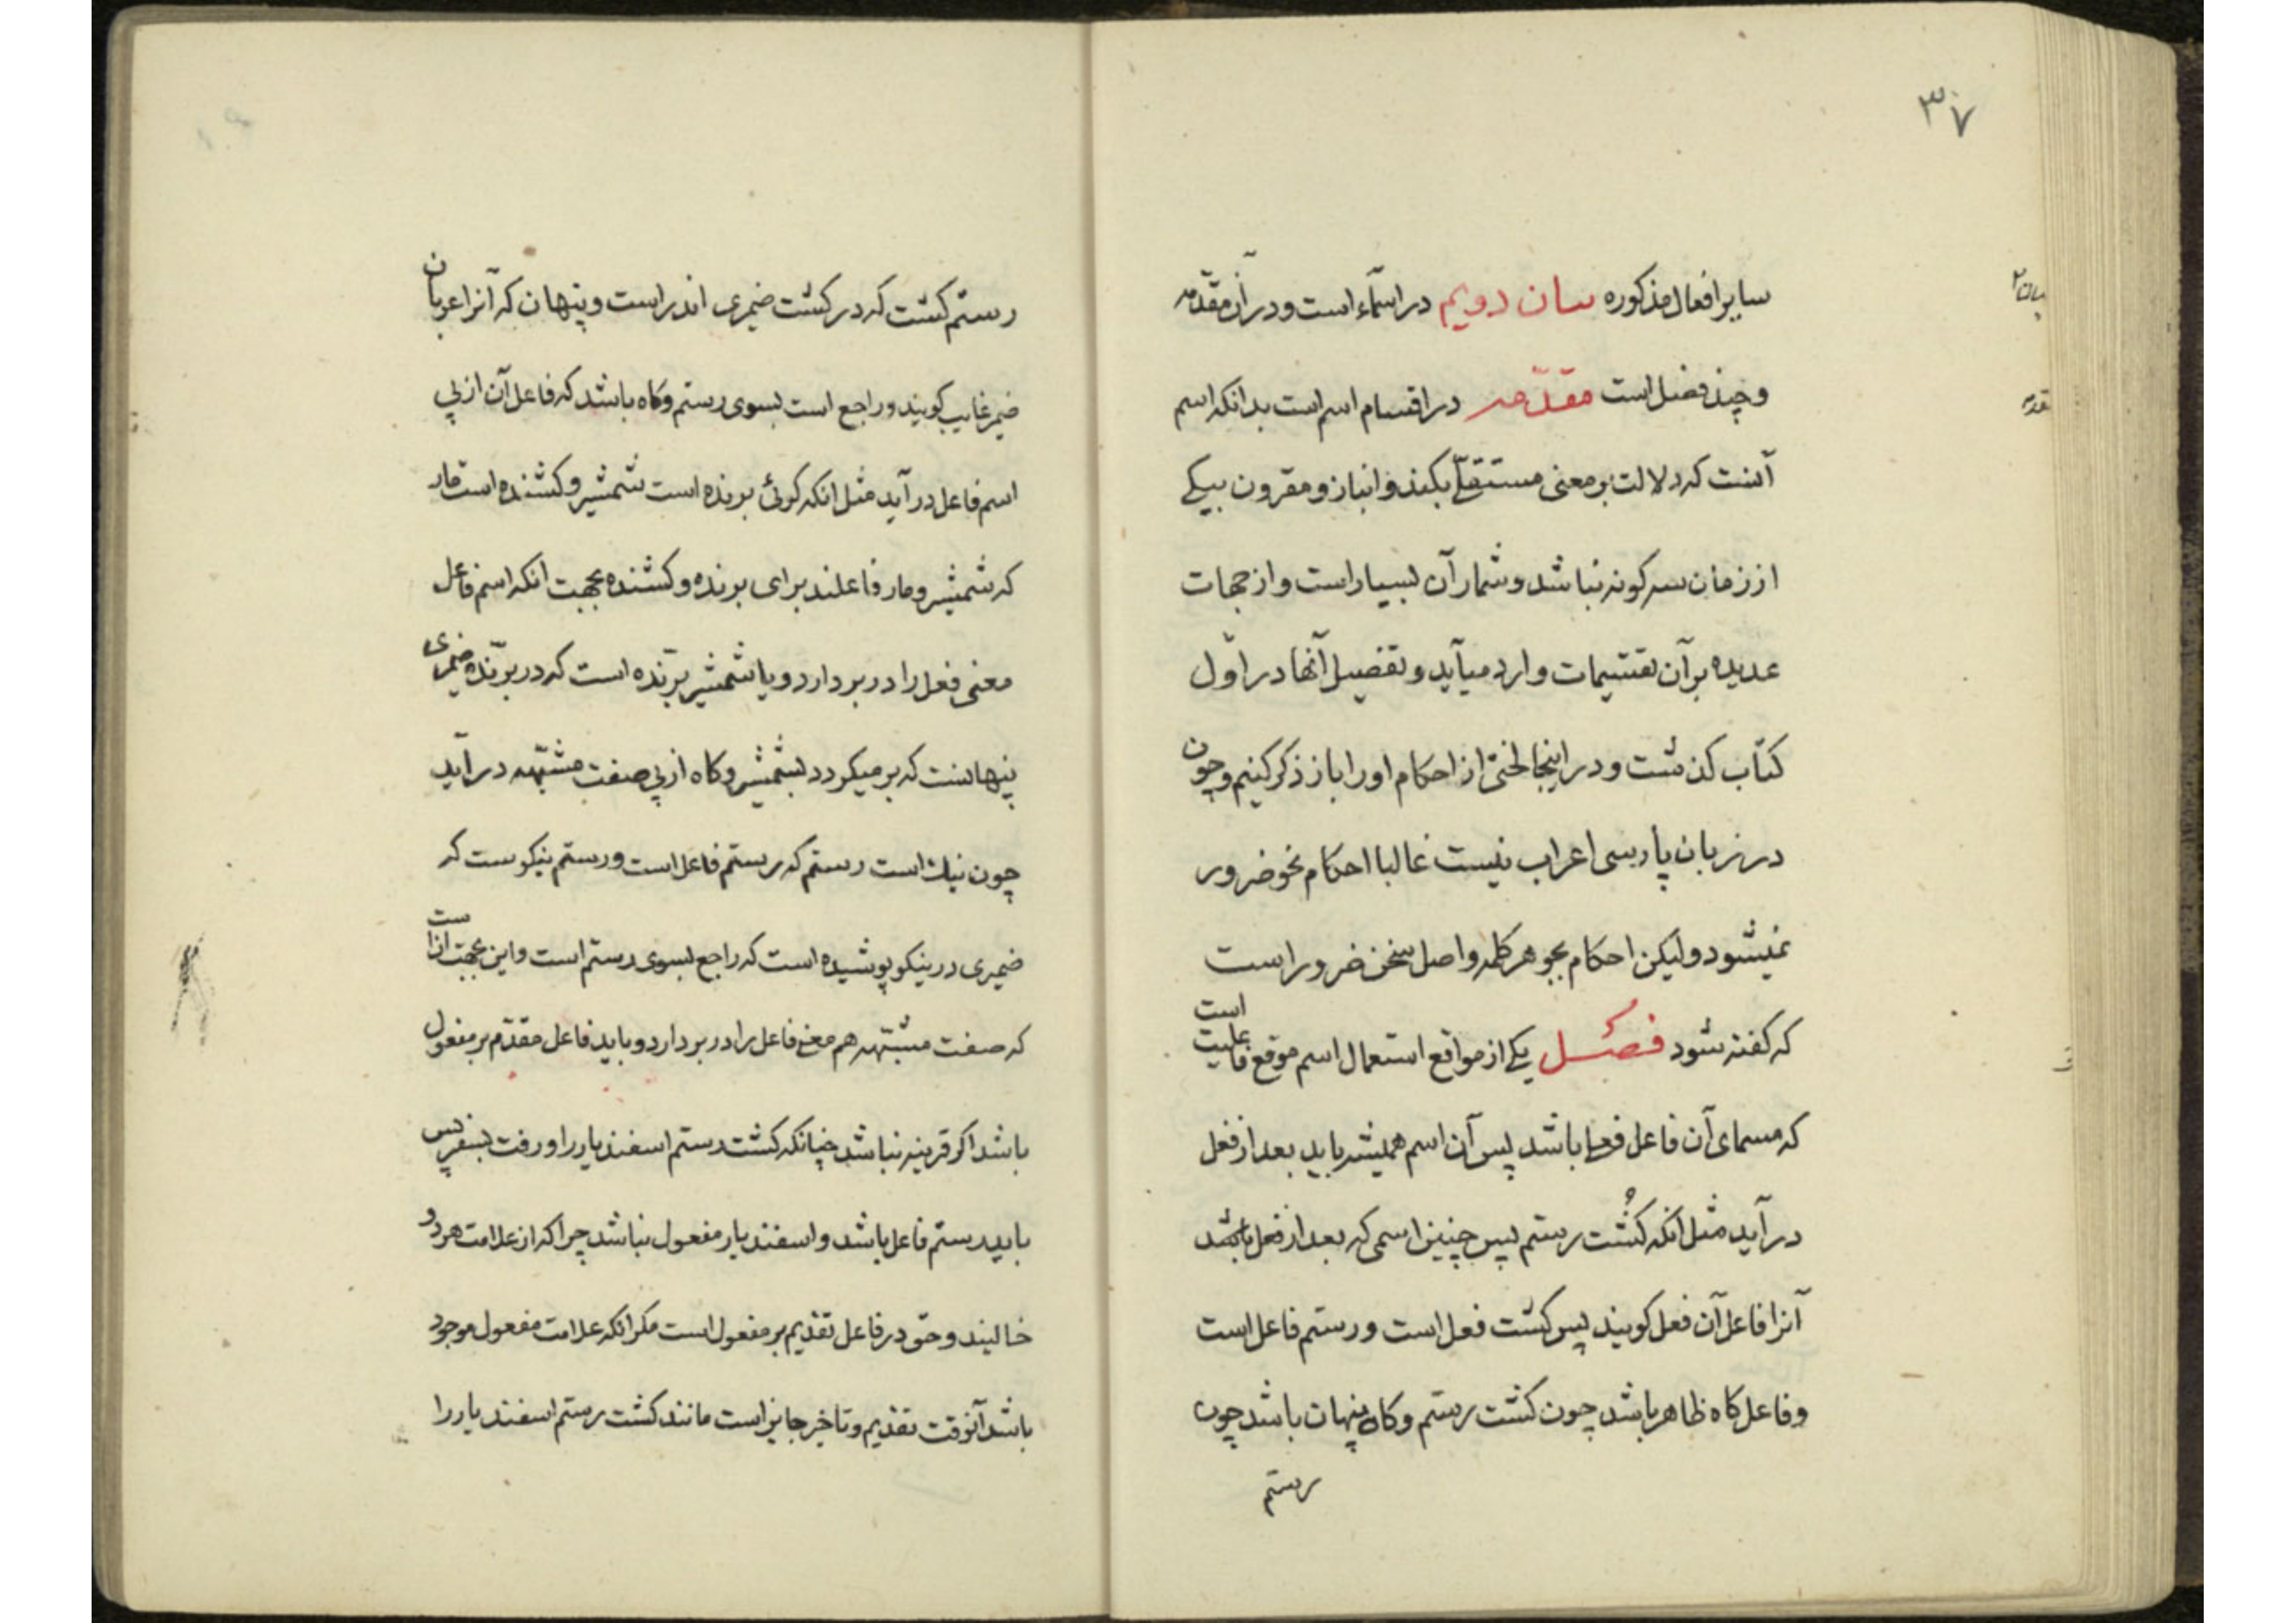 ۳۷
سایر افعال مذکوره سان دویم در اسمآء است و در آن مقدّمه
و چند فصل است مقدّمه در اقسام اسم است بدانکه اسم
آنست که دلالت بر معنی مستقلّے بکند و انباز و مقرون بیکے
از زمان سه کونه نباشد و شمار آن بسیار است و از جهات
عدیده بر آن تقسیمات وارد میآید و تفصیل آنها در اوّل
کتاب کذشت و در اینجا لختی از احکام او را باز ذکر کنیم و چون
در زبان پارسی اعراب نیست غالبا احکام نحو ضرور
نمیشود ولیکن احکام بجوهر کلمه و اصل سخن ضرور است
که کفته شود فصل یکے از مواقع استعمال اسم موقع فاعلیت است
که مسمای آن فاعل فعلے باشد پس آن اسم همیشه باید بعد از فعل
در آید مثل آنکه کُشت رستم پس چنین اسمی که بعد از فعل باشد
آنرا فاعل آن فعل کویند پس کشت فعل است و رستم فاعل است
و فاعل کاه ظاهر باشد چون کشت رستم و کاه پنهان باشد چون
رستم
رستم کشت که در کشت ضمیری اندر است و پنهان که آنرا عربان
ضمیر غایب کویند و راجع است بسوی رستم و کاه باشد که فاعل آن از پی
اسم فاعل در آید مثل انکه کوئی برنده است شمشیر و کشنده است مار
که شمشیر و مار فاعلند برای برنده و کشنده بجهت انکه اسم فاعل
معنی فعل را در بر دارد و یا شمشیر برّنده است که در برّنده ضمیری
پنهانست که بر میکردد بشمشیر و کاه از پی صفت مشبّهه در آید
چون نیک است رستم که رستم فاعل است و رستم نیکوست که
ضمیری در نیکو پوشیده است که راجع بسوی رستم است و این بجهت آنست
که صفت مشبّهه هم معنی فاعل را در بر دارد و باید فاعل مقدّم بر مفعول
باشد اکر قرینه نباشد چنانکه کشت رستم اسفندیار را و رفت بسفر پس
باید رستم فاعل باشد و اسفندیار مفعول نباشد چرا که از علامت هر دو
خالیند و حق در فاعل تقدیم بر مفعول است مکر انکه علامت مفعول موجود
باشد آنوقت تقدیم و تاخیر جایز است مانند کشت رستم اسفندیار را